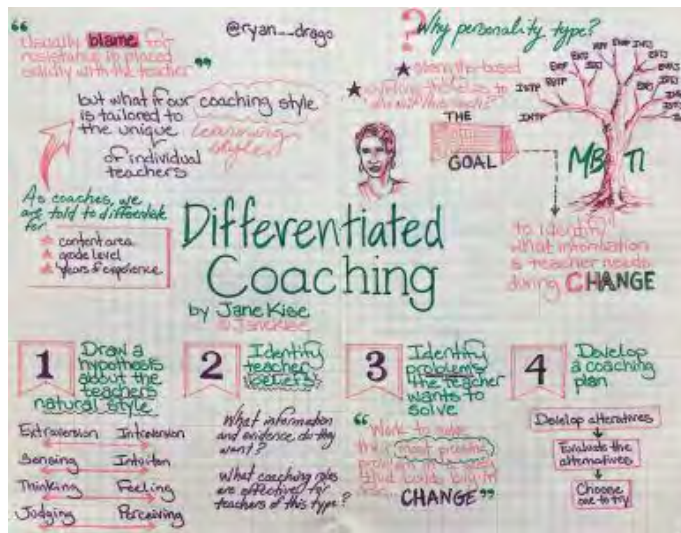 @ryan__drago
"Usually blame for
resistance is placed
solely with the teacher"
but what if our coaching style
is tailored to
the unique learning
styles
of individual
teachers
As coaches, we
are told to differentiate
for
content area
grade level
years of experience
? Why personality type?
strengths-based
THE
GOAL
MBTI
INTP
ESTP
ENTJ
to identify
what information
a teacher needs
during CHANGE
Differentiated
Coaching
by Jane Kise
@JaneKise
1
Draw a
hypothesis
about the
teachers
natural style
Extraversion Introversion
Sensing Intuition
Thinking Feeling
Judging Perceiving
2
Identify
teacher
beliefs
What information
and evidence do they
want?
What coaching roles
are effective for
teachers of this type?
3
Identify
problems
the teacher
wants to
solve
"Work to solve
their most pressing
problem in a way
that builds buy-in
CHANGE"
4
Develop
a coaching
plan
Develop alteratives
Evaluate the
alternatives
Choose
one to try